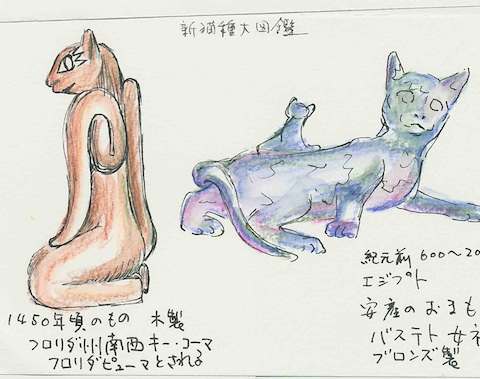 新猫種大図鑑
1450年頃のもの 木製
フロリダ州南西キー・コーマ
フロリダピューマとされる
紀元前 600〜20
エジプト
安産のおまも
バステト女ネ
ブロンズ製